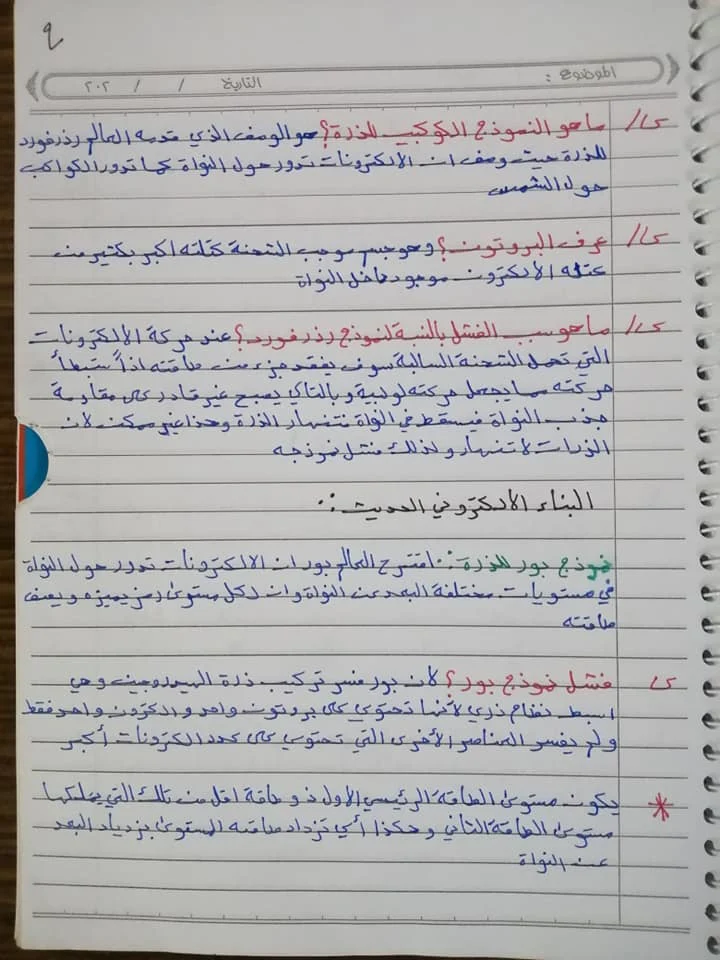 ٩
الموضوع :
التاريخ / / ٢٠٢
س/١ ما هو النموذج الكوكبي للذرة؟ هو الوصف الذي قدمه العالم رذرفورد
للذرة حيث وصف ان الالكترونات تدور حول النواة كما تدور الكواكب
حول الشمس
س/١ عرف البروتون؟ وهو جسم موجب الشحنة كتلته اكبر بكثير من
كتله الالكترون موجود داخل النواة
س/١ ما هو سبب الفشل بالنسبة لنموذج رذرفورد؟ عند حركة الالكترونات
التي تحمل الشحنة السالبة سوف يفقد جزء من طاقته اذاً ستبطأ
حركته مما يجعل حركته لولبية وبالتالي يصبح غير قادر على مقاومة
جذب النواة فيسقط في النواة فتنهار الذرة وهذا غير ممكن لان
الذرات لا تنهار ولذلك فشل نموذجه
البناء الالكتروني الحديث :
نموذج بور للذرة : افترح العالم بور ان الالكترونات تدور حول النواة
في مستويات مختلفة البعد عن النواة وان لكل مستوى رمز يميزه ويصف
طاقته
س/ فشل نموذج بور؟ لان بور فسر تركيب ذرة الهيدروجين وهي
ابسط نظام ذري لأنها تحتوي على بروتون واحد والكترون واحد فقط
ولم يفسر العناصر الأخرى التي تحتوي على عدد الكترونات أكبر
* يكون مستوى الطاقة الرئيسي الاول ذو طاقة اقل من تلك التي يملكها
مستوى الطاقة الثاني وهكذا أي تزداد طاقته المستوى بزدياد البعد
عن النواة